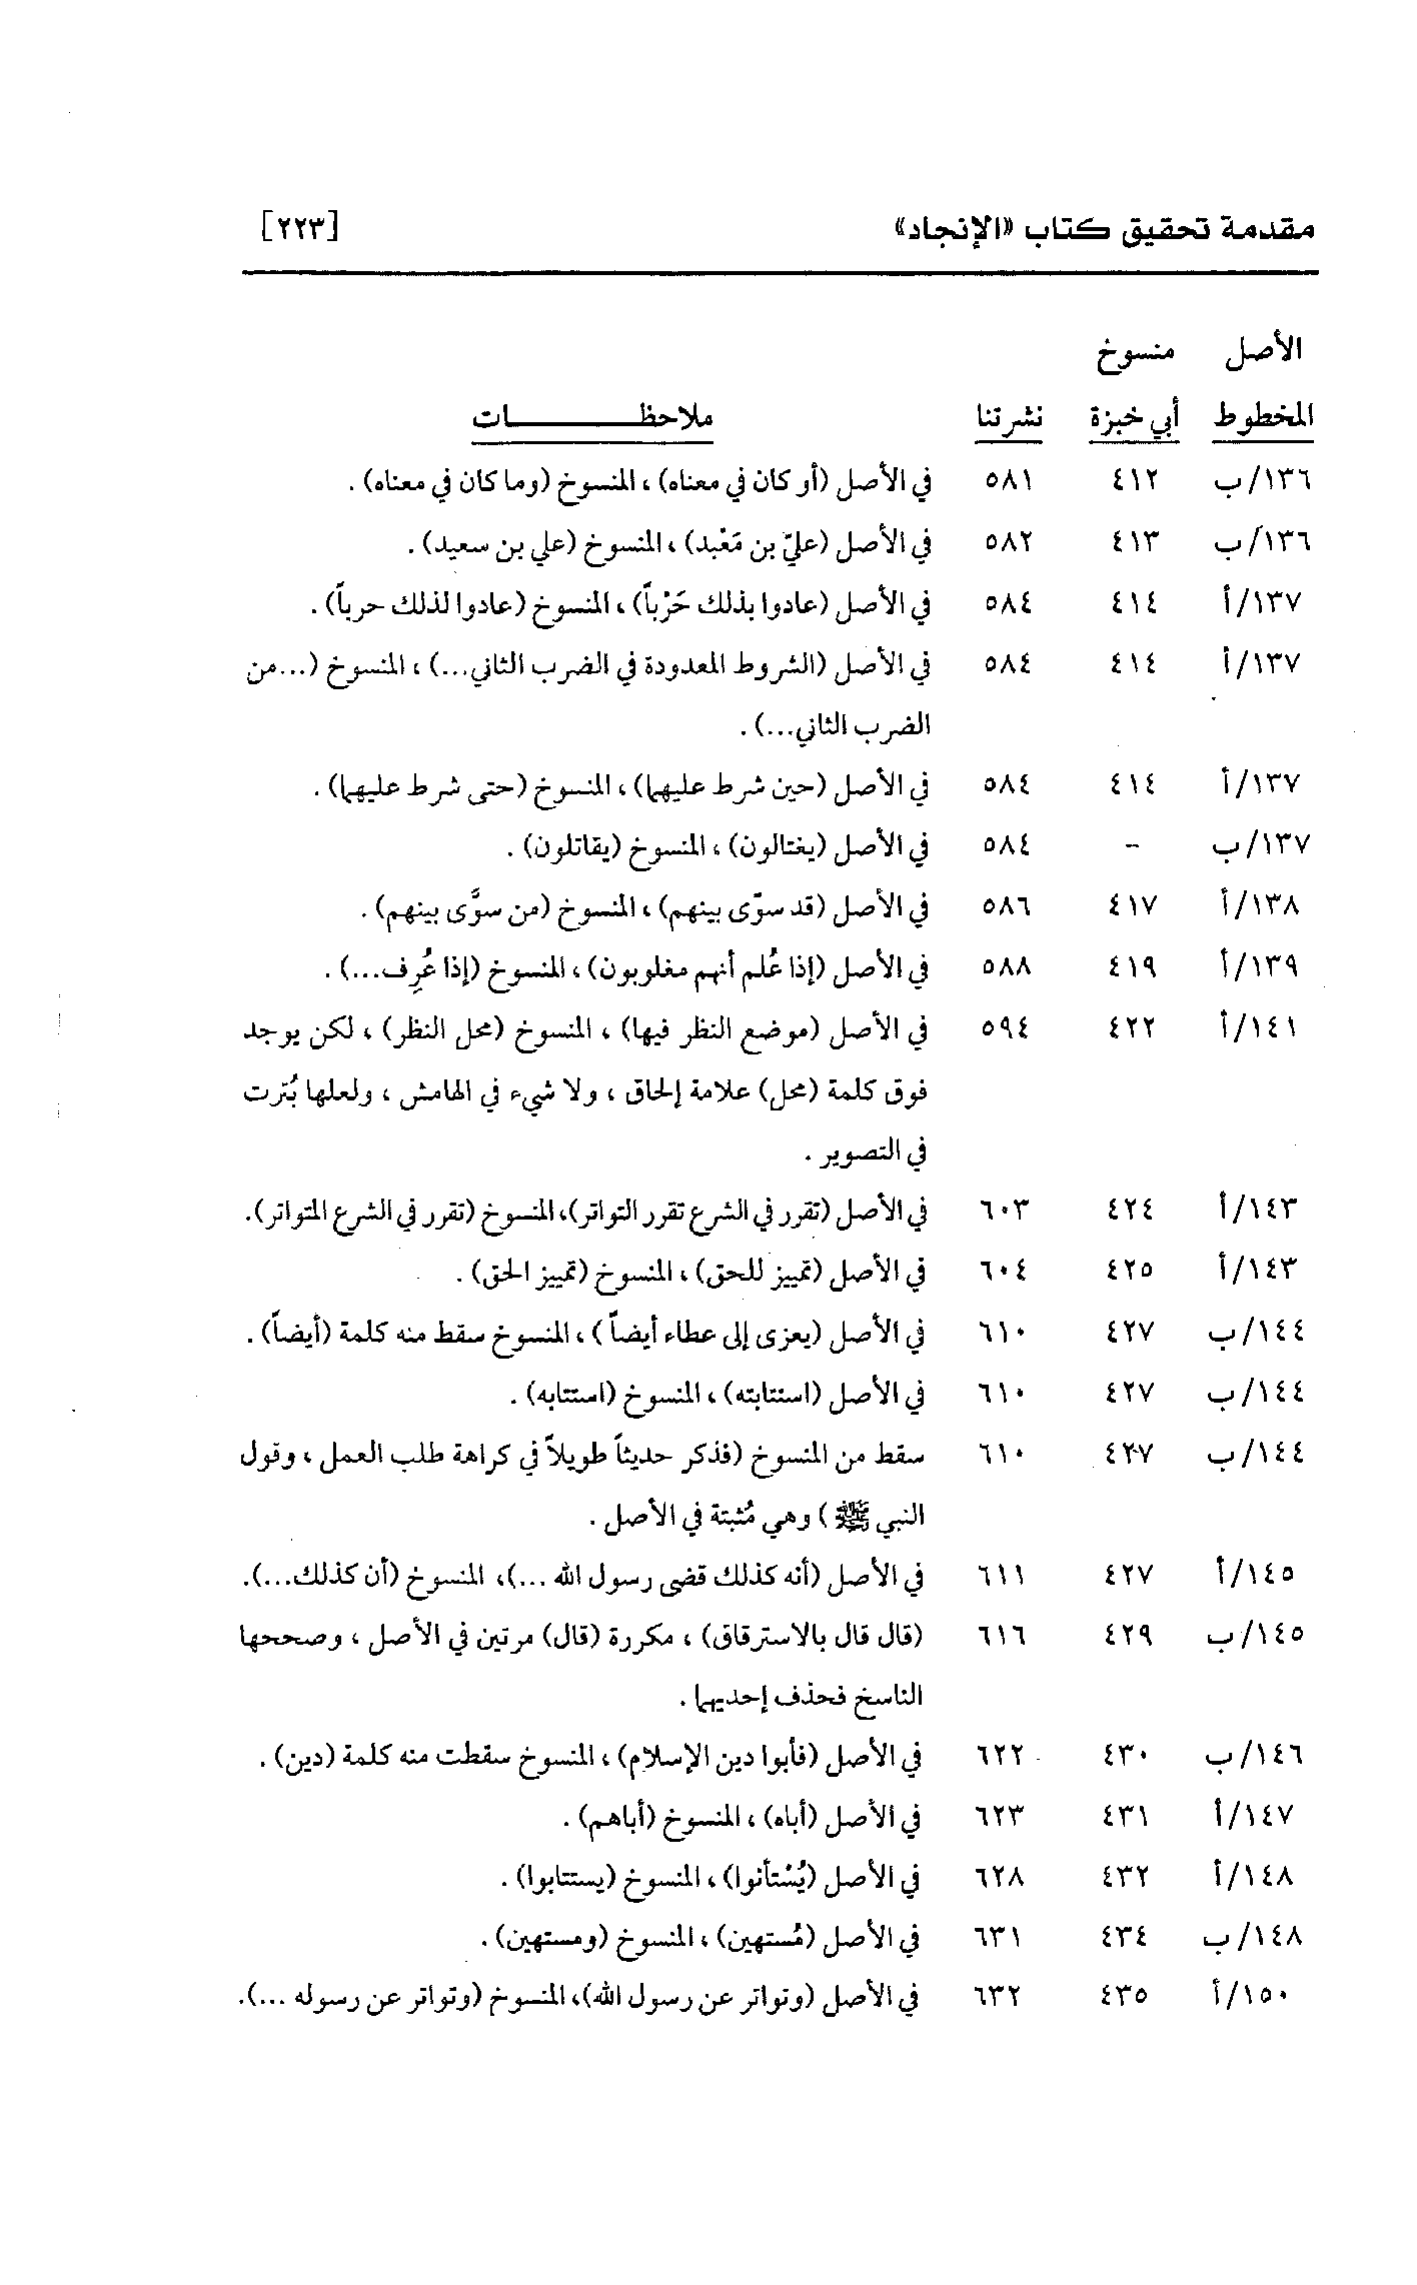 مقدمة تحقيق كتاب «الإنجاد» [٢٢٣]
الأصل منسوخ
المخطوط أبي خبزة نشرتنا ملاحظــــــــات
١٣٦/ب ٤١٢ ٥٨١ في الأصل (أو كان في معناه)، المنسوخ (وما كان في معناه).
١٣٦/ب ٤١٣ ٥٨٢ في الأصل (عليّ بن مَعْبد)، المنسوخ (علي بن سعيد).
١٣٧/أ ٤١٤ ٥٨٤ في الأصل (عادوا بذلك حَرْباً)، المنسوخ (عادوا لذلك حرباً).
١٣٧/أ ٤١٤ ٥٨٤ في الأصل (الشروط المعدودة في الضرب الثاني...)، المنسوخ (...من
الضرب الثاني...).
١٣٧/أ ٤١٤ ٥٨٤ في الأصل (حين شرط عليهما)، المنسوخ (حتى شرط عليهما).
١٣٧/ب - ٥٨٤ في الأصل (يغتالون)، المنسوخ (يقاتلون).
١٣٨/أ ٤١٧ ٥٨٦ في الأصل (قد سوّى بينهم)، المنسوخ (من سوَّى بينهم).
١٣٩/أ ٤١٩ ٥٨٨ في الأصل (إذا عُلم أنهم مغلوبون)، المنسوخ (إذا عُرِف...).
١٤١/أ ٤٢٢ ٥٩٤ في الأصل (موضع النظر فيها)، المنسوخ (محل النظر)، لكن يوجد
فوق كلمة (محل) علامة إلحاق، ولا شيء في الهامش، ولعلها بُترت
في التصوير.
١٤٣/أ ٤٢٤ ٦٠٣ في الأصل (تقرر في الشرع تقرر التواتر)، المنسوخ (تقرر في الشرع المتواتر).
١٤٣/أ ٤٢٥ ٦٠٤ في الأصل (تمييز للحق)، المنسوخ (تمييز الحق).
١٤٤/ب ٤٢٧ ٦١٠ في الأصل (يعزى إلى عطاء أيضاً)، المنسوخ سقط منه كلمة (أيضاً).
١٤٤/ب ٤٢٧ ٦١٠ في الأصل (استتابته)، المنسوخ (استتابه).
١٤٤/ب ٤٢٧ ٦١٠ سقط من المنسوخ (فذكر حديثاً طويلاً في كراهة طلب العمل، وقول
النبي ﷺ) وهي مُثبتة في الأصل.
١٤٥/أ ٤٢٧ ٦١١ في الأصل (أنه كذلك قضى رسول الله ...)، المنسوخ (أن كذلك...).
١٤٥/ب ٤٢٩ ٦١٦ (قال قال بالاسترقاق)، مكررة (قال) مرتين في الأصل، وصححها
الناسخ فحذف إحديهما.
١٤٦/ب ٤٣٠ ٦٢٢ في الأصل (فأبوا دين الإسلام)، المنسوخ سقطت منه كلمة (دين).
١٤٧/أ ٤٣١ ٦٢٣ في الأصل (أباه)، المنسوخ (أباهم).
١٤٨/أ ٤٣٢ ٦٢٨ في الأصل (يُسْتأنوا)، المنسوخ (يستتابوا).
١٤٨/ب ٤٣٤ ٦٣١ في الأصل (مُستهين)، المنسوخ (ومستهين).
١٥٠/أ ٤٣٥ ٦٣٢ في الأصل (وتواتر عن رسول الله)، المنسوخ (وتواتر عن رسوله ...).